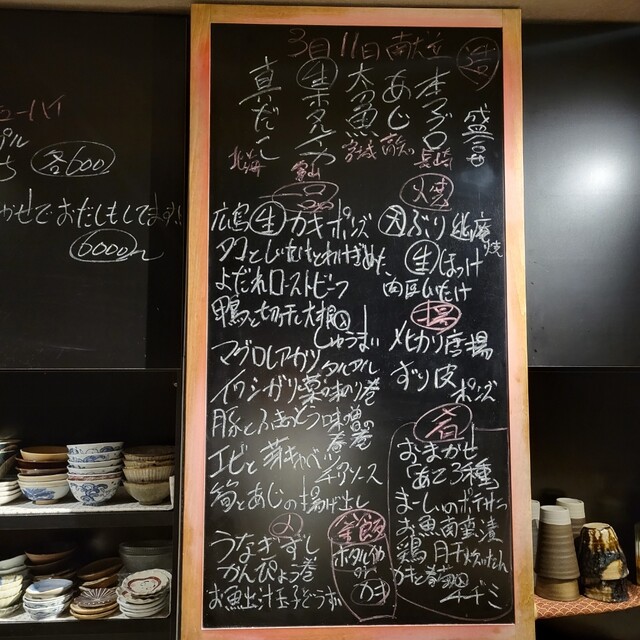 3月11日 献立
造
盛合せ
本マグロ 長崎
あじ 高知
太刀魚 宮城
生 ホタルイカ 富山
真だこ 北海
一品
広島 生 カキポン酢
タコとしいたけとわけぎぬた
よだれローストビーフ
鴨と切干大根入しゅうまい
マグロレアカツ タルタル
イワシガリ薬味のり巻
豚とふきのとう味噌の春巻
エビと芽キャベツ チリソース
筍とあじの揚げ出し
焼
天ぶり 幽庵焼
生 ほっけ
肉厚しいたけ
揚
メヒカリ唐揚
ずり皮 ポン酢
肴
おまかせ
「あて3種」
まーしぃのポテサラ
お魚南蛮漬
鶏
カキと春菊の
チヂミ
〆
うなぎずし
かんぴょう巻
お魚出汁玉子どうふ
釜飯
ホタルイカ
の
カキ
ューハイ
プル
ち 各600
かせでおだしもしてます!!
6000